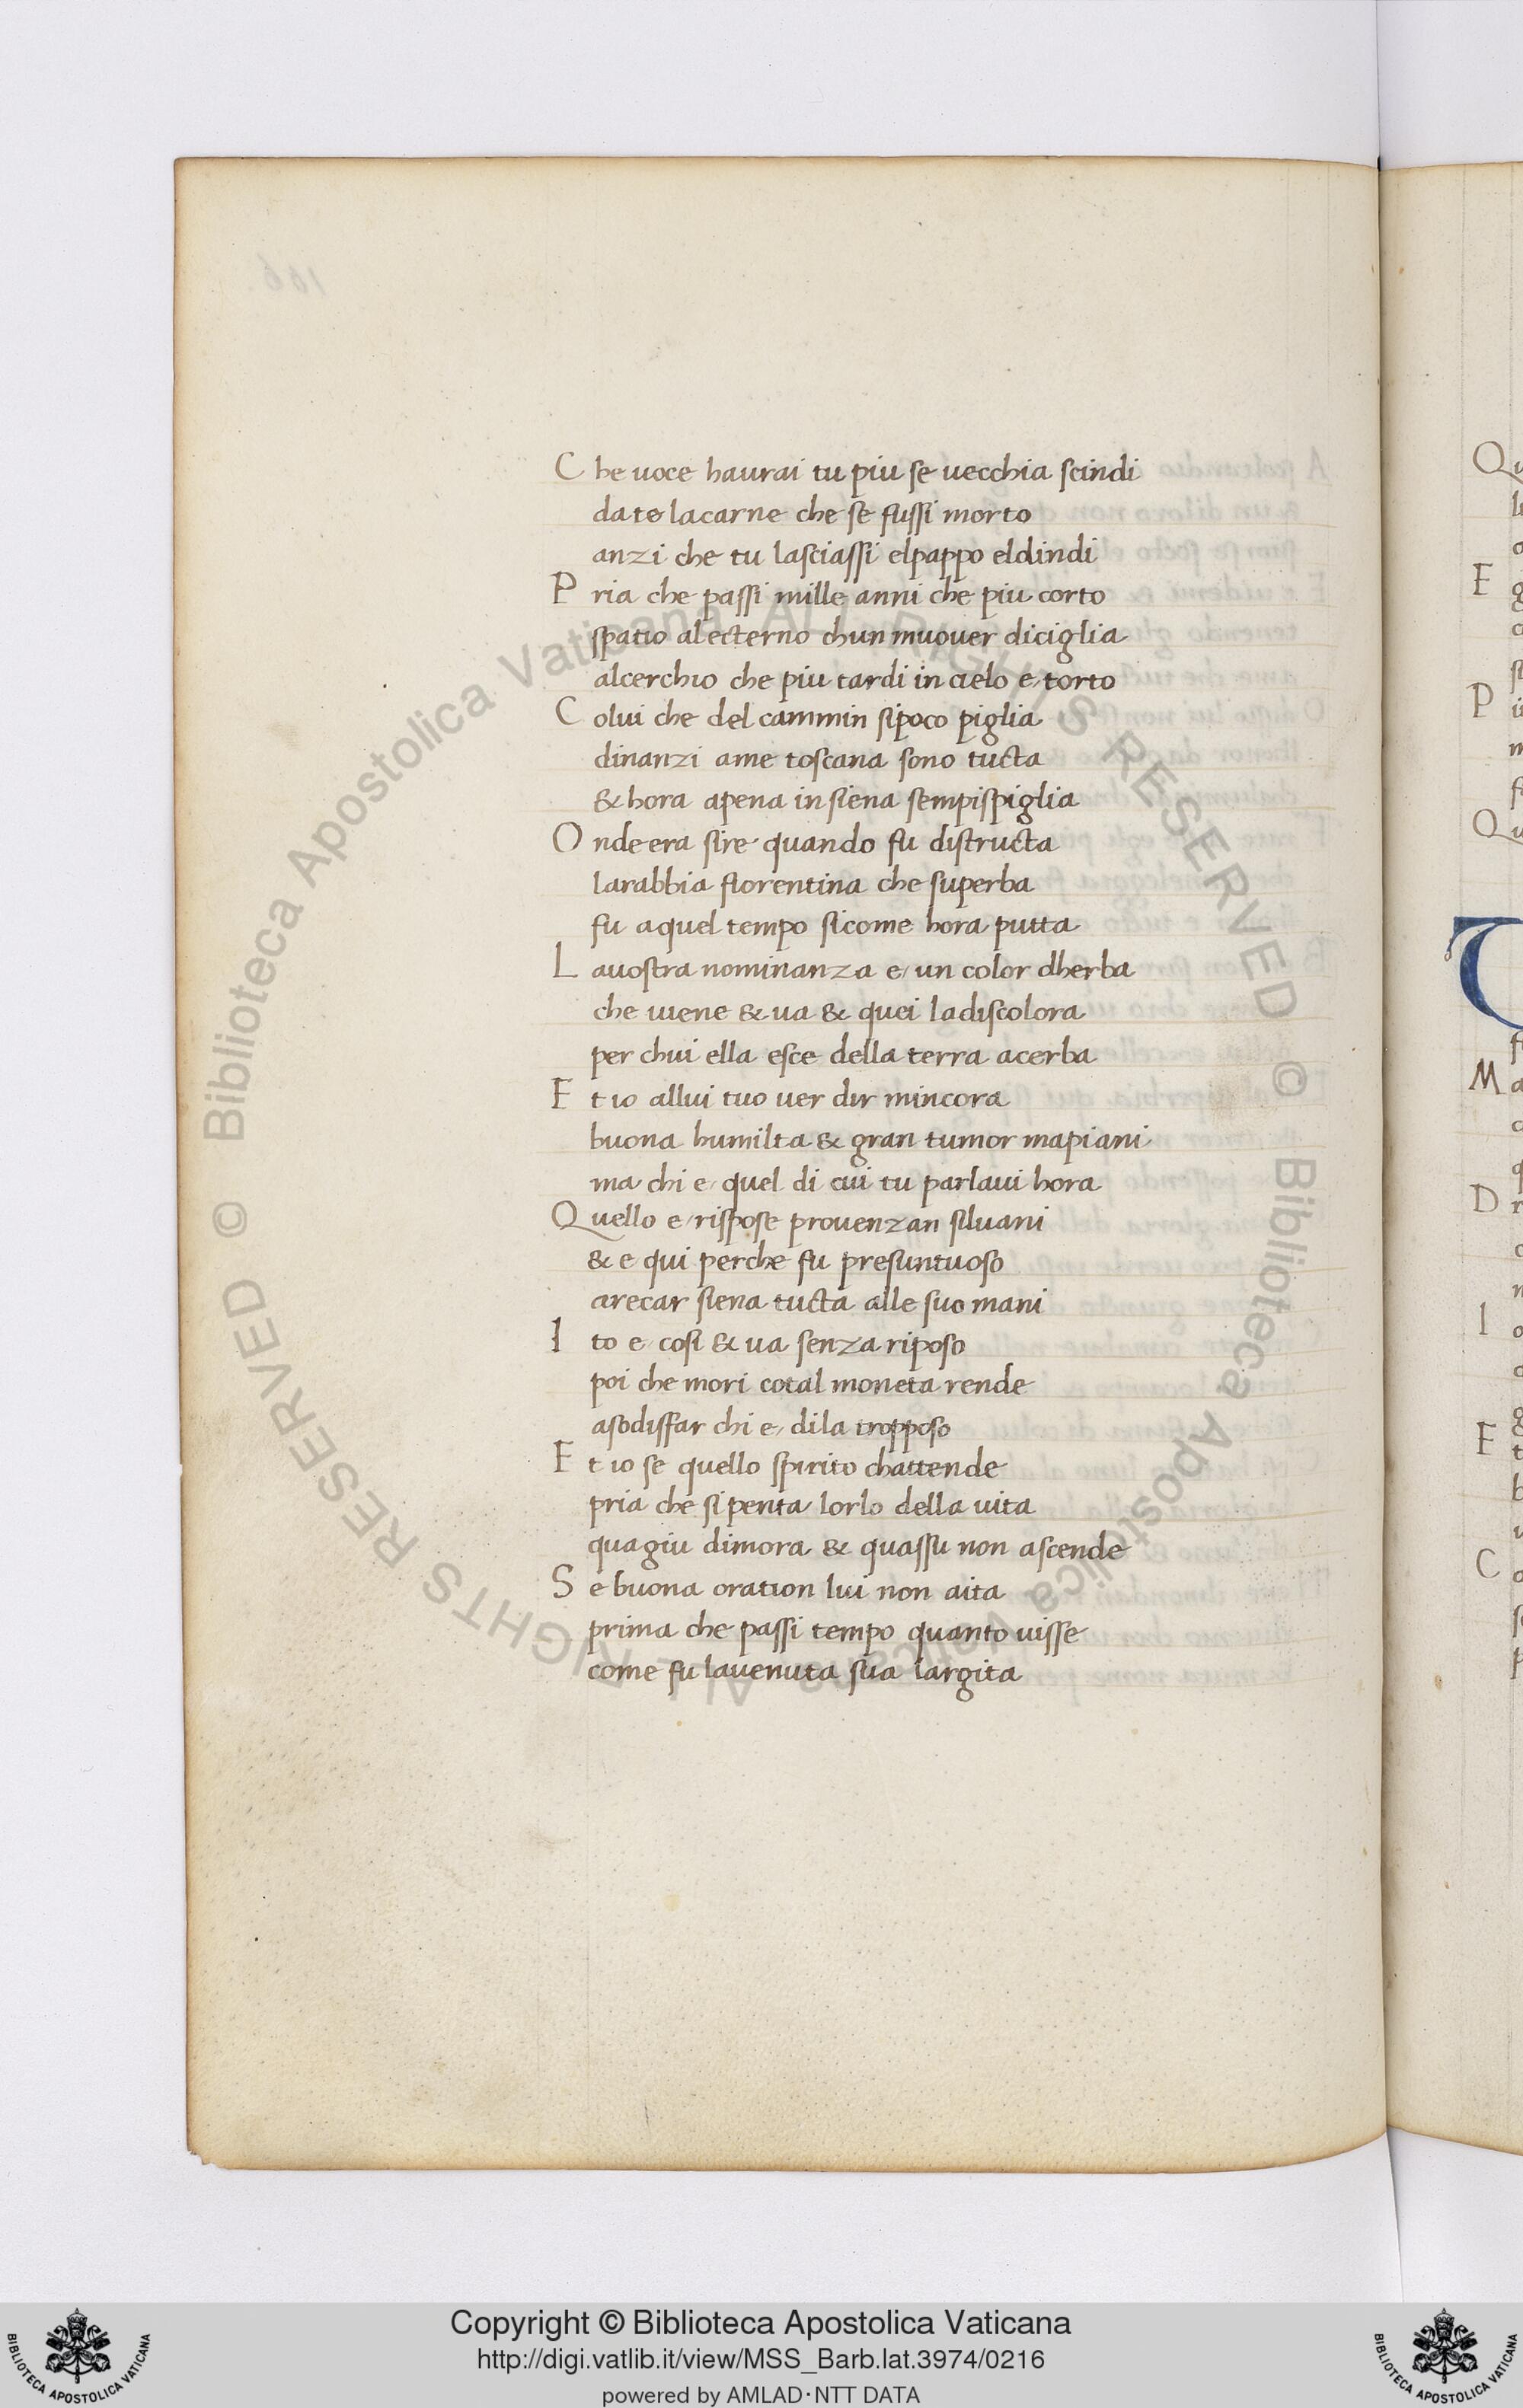 C he uoce haurai tu piu se uecchia scindi
da te lacarne che se fussi morto
anzi che tu lasciassi elpappo eldindi
P ria che passi mille anni che piu corto
spatio alecterno chun muouer diciglia
alcerchio che piu tardi in cielo e torto
C olui che del cammin sipoco piglia
dinanzi ame toscana sono tucta
& hora apena in siena sempispiglia
O nde era sire quando fu distructa
larabbia fiorentina che superba
fu aquel tempo sicome hora putta
L auostra nominanza e un color dherba
che uiene & ua & quei ladiscolora
per chui ella esce della terra acerba
E t io allui tuo uer dir mincora
buona humilta & gran tumor mapiani
ma chi e quel di cui tu parlaui hora
Q uello e rispose prouenzan siluani
& e qui perche fu presuntuoso
arecar siena tucta alle suo mani
I to e cosi & ua senza riposo
poi che mori cotal moneta rende
asodisfar chi e dila tropposo
E t io se quello spirito chattende
pria che sipenta lorlo della uita
quagiu dimora & quassu non ascende
S e buona oration lui non aita
prima che passi tempo quanto uisse
come fu lauenuta sua largita
© Biblioteca Apostolica Vaticana ALL RIGHTS RESERVED © Biblioteca Apostolica Vaticana ALL RIGHTS RESERVED
Copyright © Biblioteca Apostolica Vaticana
http://digi.vatlib.it/view/MSS_Barb.lat.3974/0216
powered by AMLAD·NTT DATA
BIBLIOTECA APOSTOLICA VATICANA
BIBLIOTECA APOSTOLICA VATICANA